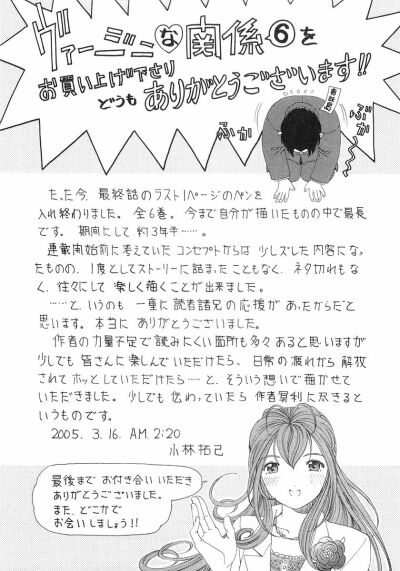 ヴァージニな関係⑥を
お買い上げ下さり
どうもありがとうございます!!
ぶか
ぶか
たった今、最終話のラスト1ページのペンを
入れ終わりました。全6巻。今まで自分が描いたものの中で最長
です。期間にして約3年半……。
連載開始前に考えていたコンセプトからは少しズレた内容になっ
たものの、1度としてストーリーに詰まったこともなく、ネタ切れもな
く、往々にして楽しく描くことが出来ました。
……と、いうのも一重に読者諸兄の応援があったからだと
思います。本当にありがとうございました。
作者の力量不足で読みにくい箇所も多々あると思いますが
少しでも皆さんに楽しんでいただけたら、日常の疲れから解放
されてホッとしていただけたら……と、そういう想いで描かせて
いただきました。少しでも伝わっていたら作者冥利に尽きると
いうものです。
2005. 3. 16. AM. 2:20
小林拓己
最後までお付き合いいただき
ありがとうございました。
また、どこかで
お会いしましょう!!